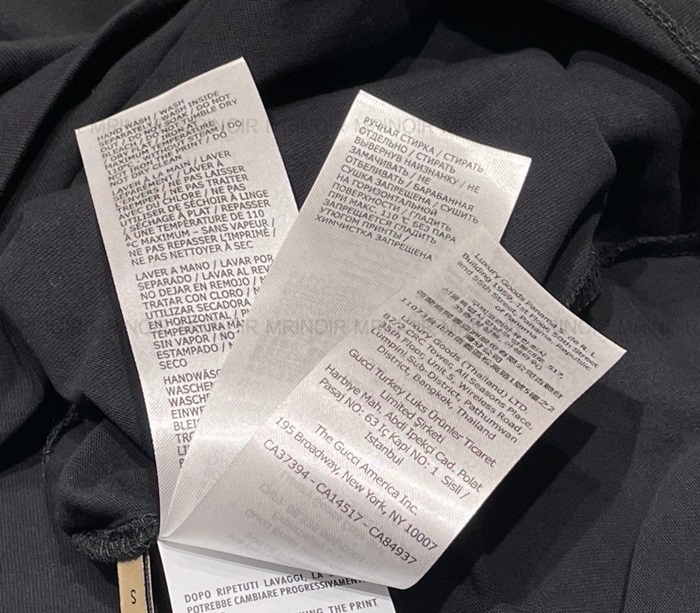 HAND WASH / WASH INSIDE
SEPARATELY / WASH
OUT / DO NOT SOAK / DO NOT
BLEACH / DO NOT TUMBLE DRY
/ DRY FLAT / IRON
MAXIMUM TEMPERATURE
110°C / NOT STEAM / DO
NOT IRON THE PRINT / DO
NOT DRY CLEAN
LAVER À LA MAIN / LAVER
SÉPARÉMENT / LAVER
À L'ENVERS / NE PAS LAISSER
TREMPER / NE PAS TRAITER
AVEC DU CHLORE / NE PAS
UTILISER DE SÉCHOIR À LINGE
/ SÉCHAGE À PLAT / REPASSER
À UNE TEMPÉRATURE DE 110
°C MAXIMUM – SANS VAPEUR /
NE PAS REPASSER L'IMPRIMÉ /
NE PAS NETTOYER À SEC
LAVER A MANO / LAVAR POR
SEPARADO / LAVAR AL REV
NO DEJAR EN REMOJO / N
TRATAR CON CLORO / N
UTILIZAR SECADORA
EN HORIZONTAL / P
TEMPERATURA MÁ
SIN VAPOR / NO
ESTAMPADO / N
SECO
HANDWÄSC
WASCHEN
WASCHE
EINWE
BLEI
TRO
РУЧНАЯ СТИРКА / СТИРАТЬ
ОТДЕЛЬНО / СТИРАТЬ
ВЫВЕРНУВ НАИЗНАНКУ / НЕ
ЗАМАЧИВАТЬ / НЕ
ОТБЕЛИВАТЬ / БАРАБАННАЯ
СУШКА ЗАПРЕЩЕНА / СУШИТЬ
НА ГОРИЗОНТАЛЬНОЙ
ПОВЕРХНОСТИ / ГЛАДИТЬ
ПРИ МАКС. 110 °C БЕЗ ПАРА
ЗАПРЕЩАЕТСЯ ГЛАДИТЬ
УТЮГОМ ПРИНТЫ /
ХИМЧИСТКА ЗАПРЕЩЕНА
Luxury Goods Panama S. de R. L.
Building 1969, 1st Floor, 50th Street
and 55th Street, Panama, Republic
of Panama
Luxury Goods (Thailand) LTD.
87/2 CRC Tower, All Seasons Place,
45th Floor, Unit 5, Wireless Road,
Lumpini Sub-District, Pathumwan
District, Bangkok, Thailand
Gucci Turkey Lüks Ürünler Ticaret
Limited Şirketi
Harbiye Mah. Abdi İpekçi Cad. Polat
Pasajı NO: 63 İç Kapı NO: 1 Şişli /
İstanbul
The Gucci America Inc.
195 Broadway, New York, NY 10007
CA37394 - CA14517 - CA84937
S
DOPO RIPETUTI LAVAGGI, LA
POTREBBE CAMBIARE PROGRESSIVAMEN
THE PRINT
MRINOIR